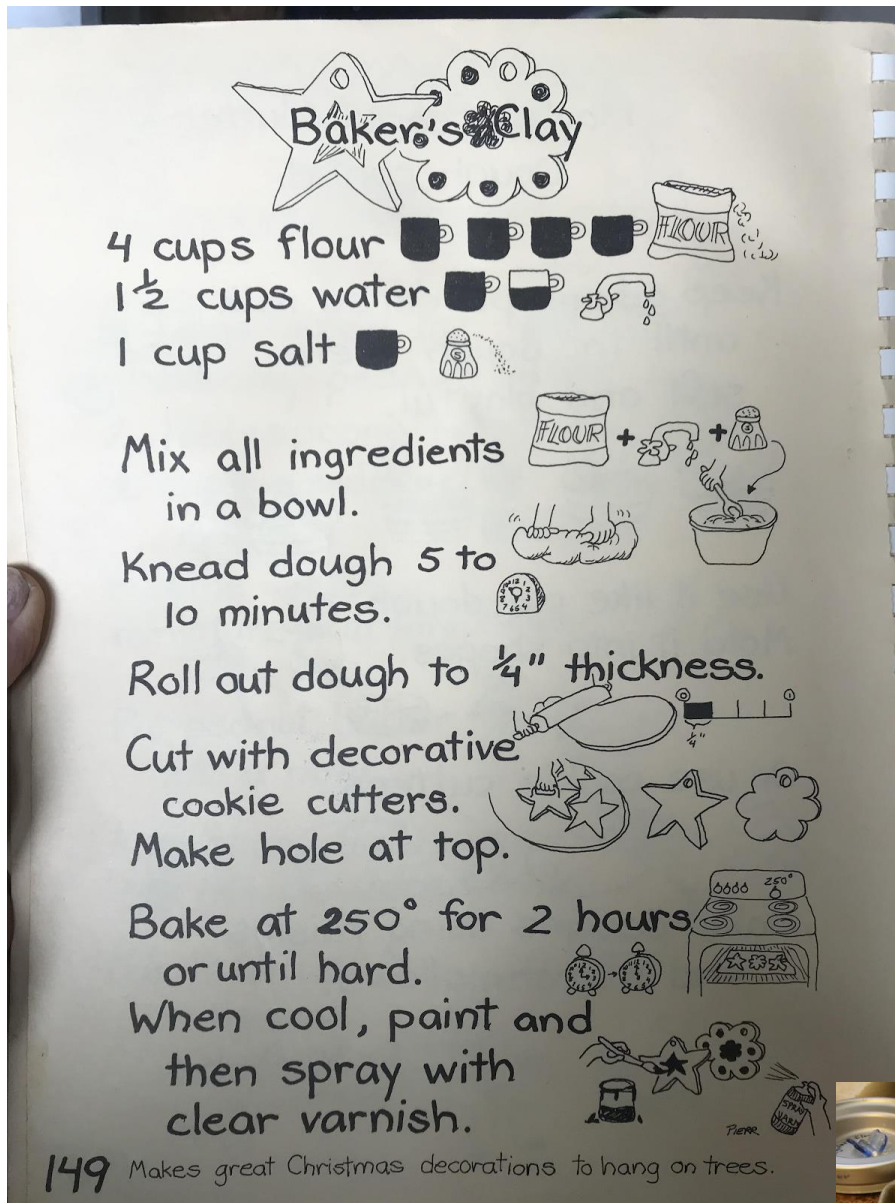 Baker's Clay
4 cups flour FLOUR
1 1/2 cups water
1 cup salt S
FLOUR + +
Mix all ingredients
in a bowl.
Knead dough 5 to
10 minutes.
Roll out dough to 1/4" thickness.
0 1
1/4"
Cut with decorative
cookie cutters.
Make hole at top.
250°
Bake at 250° for 2 hours
or until hard.
When cool, paint and
then spray with
clear varnish.
SPRAY
VARN
149 Makes great Christmas decorations to hang on trees.